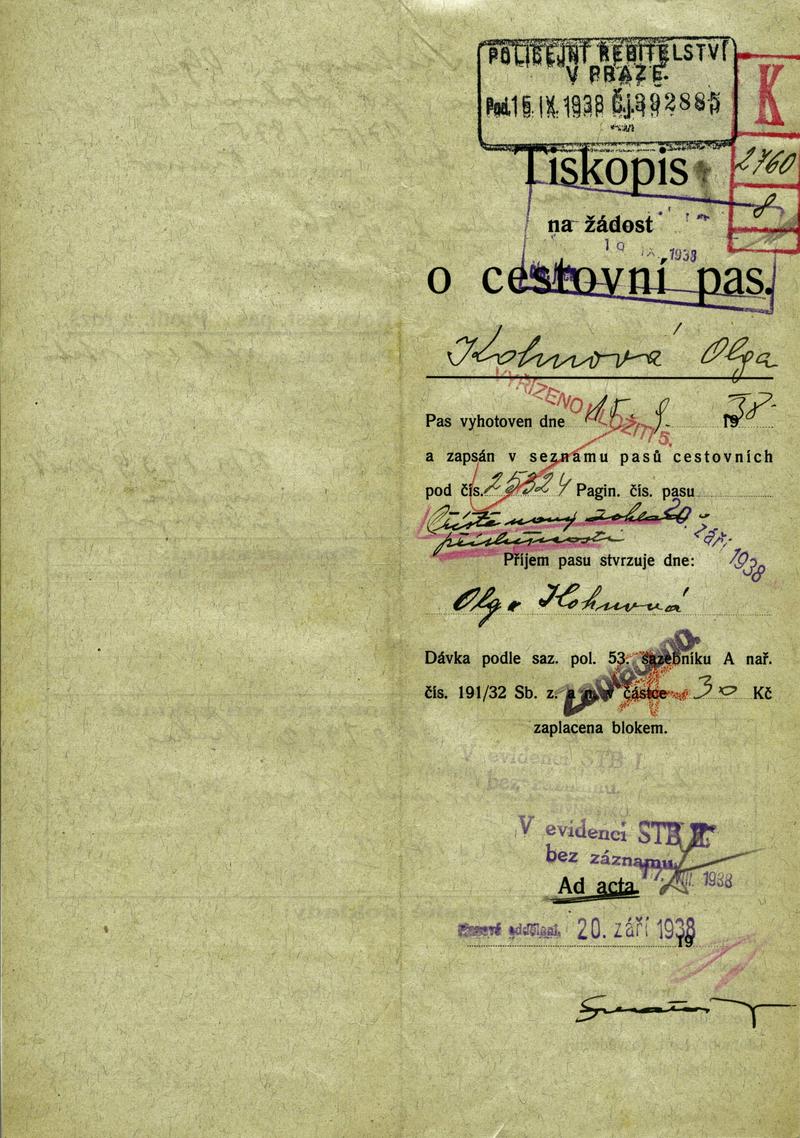 POLICEJNÍ ŘEDITELSTVÍ
V PRAZE.
Pod. 15. IX. 1938 Č.j. 392885
K
2760
8
Tiskopis
na žádost
19 1938
o cestovní pas.
Kohnová Olga
VYŘÍZENO
Pas vyhotoven dne 15. 9. 1938
a zapsán v seznamu pasů cestovních
pod čís. 25324 Pagin. čís. pasu
Čistě nový doklad
příslušnosti
20. září 1938
Příjem pasu stvrzuje dne:
Olga Kohnová
Dávka podle saz. pol. 53. sazebníku A nař.
čís. 191/32 Sb. z. a n. v částce 30 Kč
Zaplaceno.
zaplacena blokem.
V evidenci STB I.
bez záznamu.
V evidenci STB
bez záznamu.
Ad acta 17. XII. 1938
20. září 1938
19